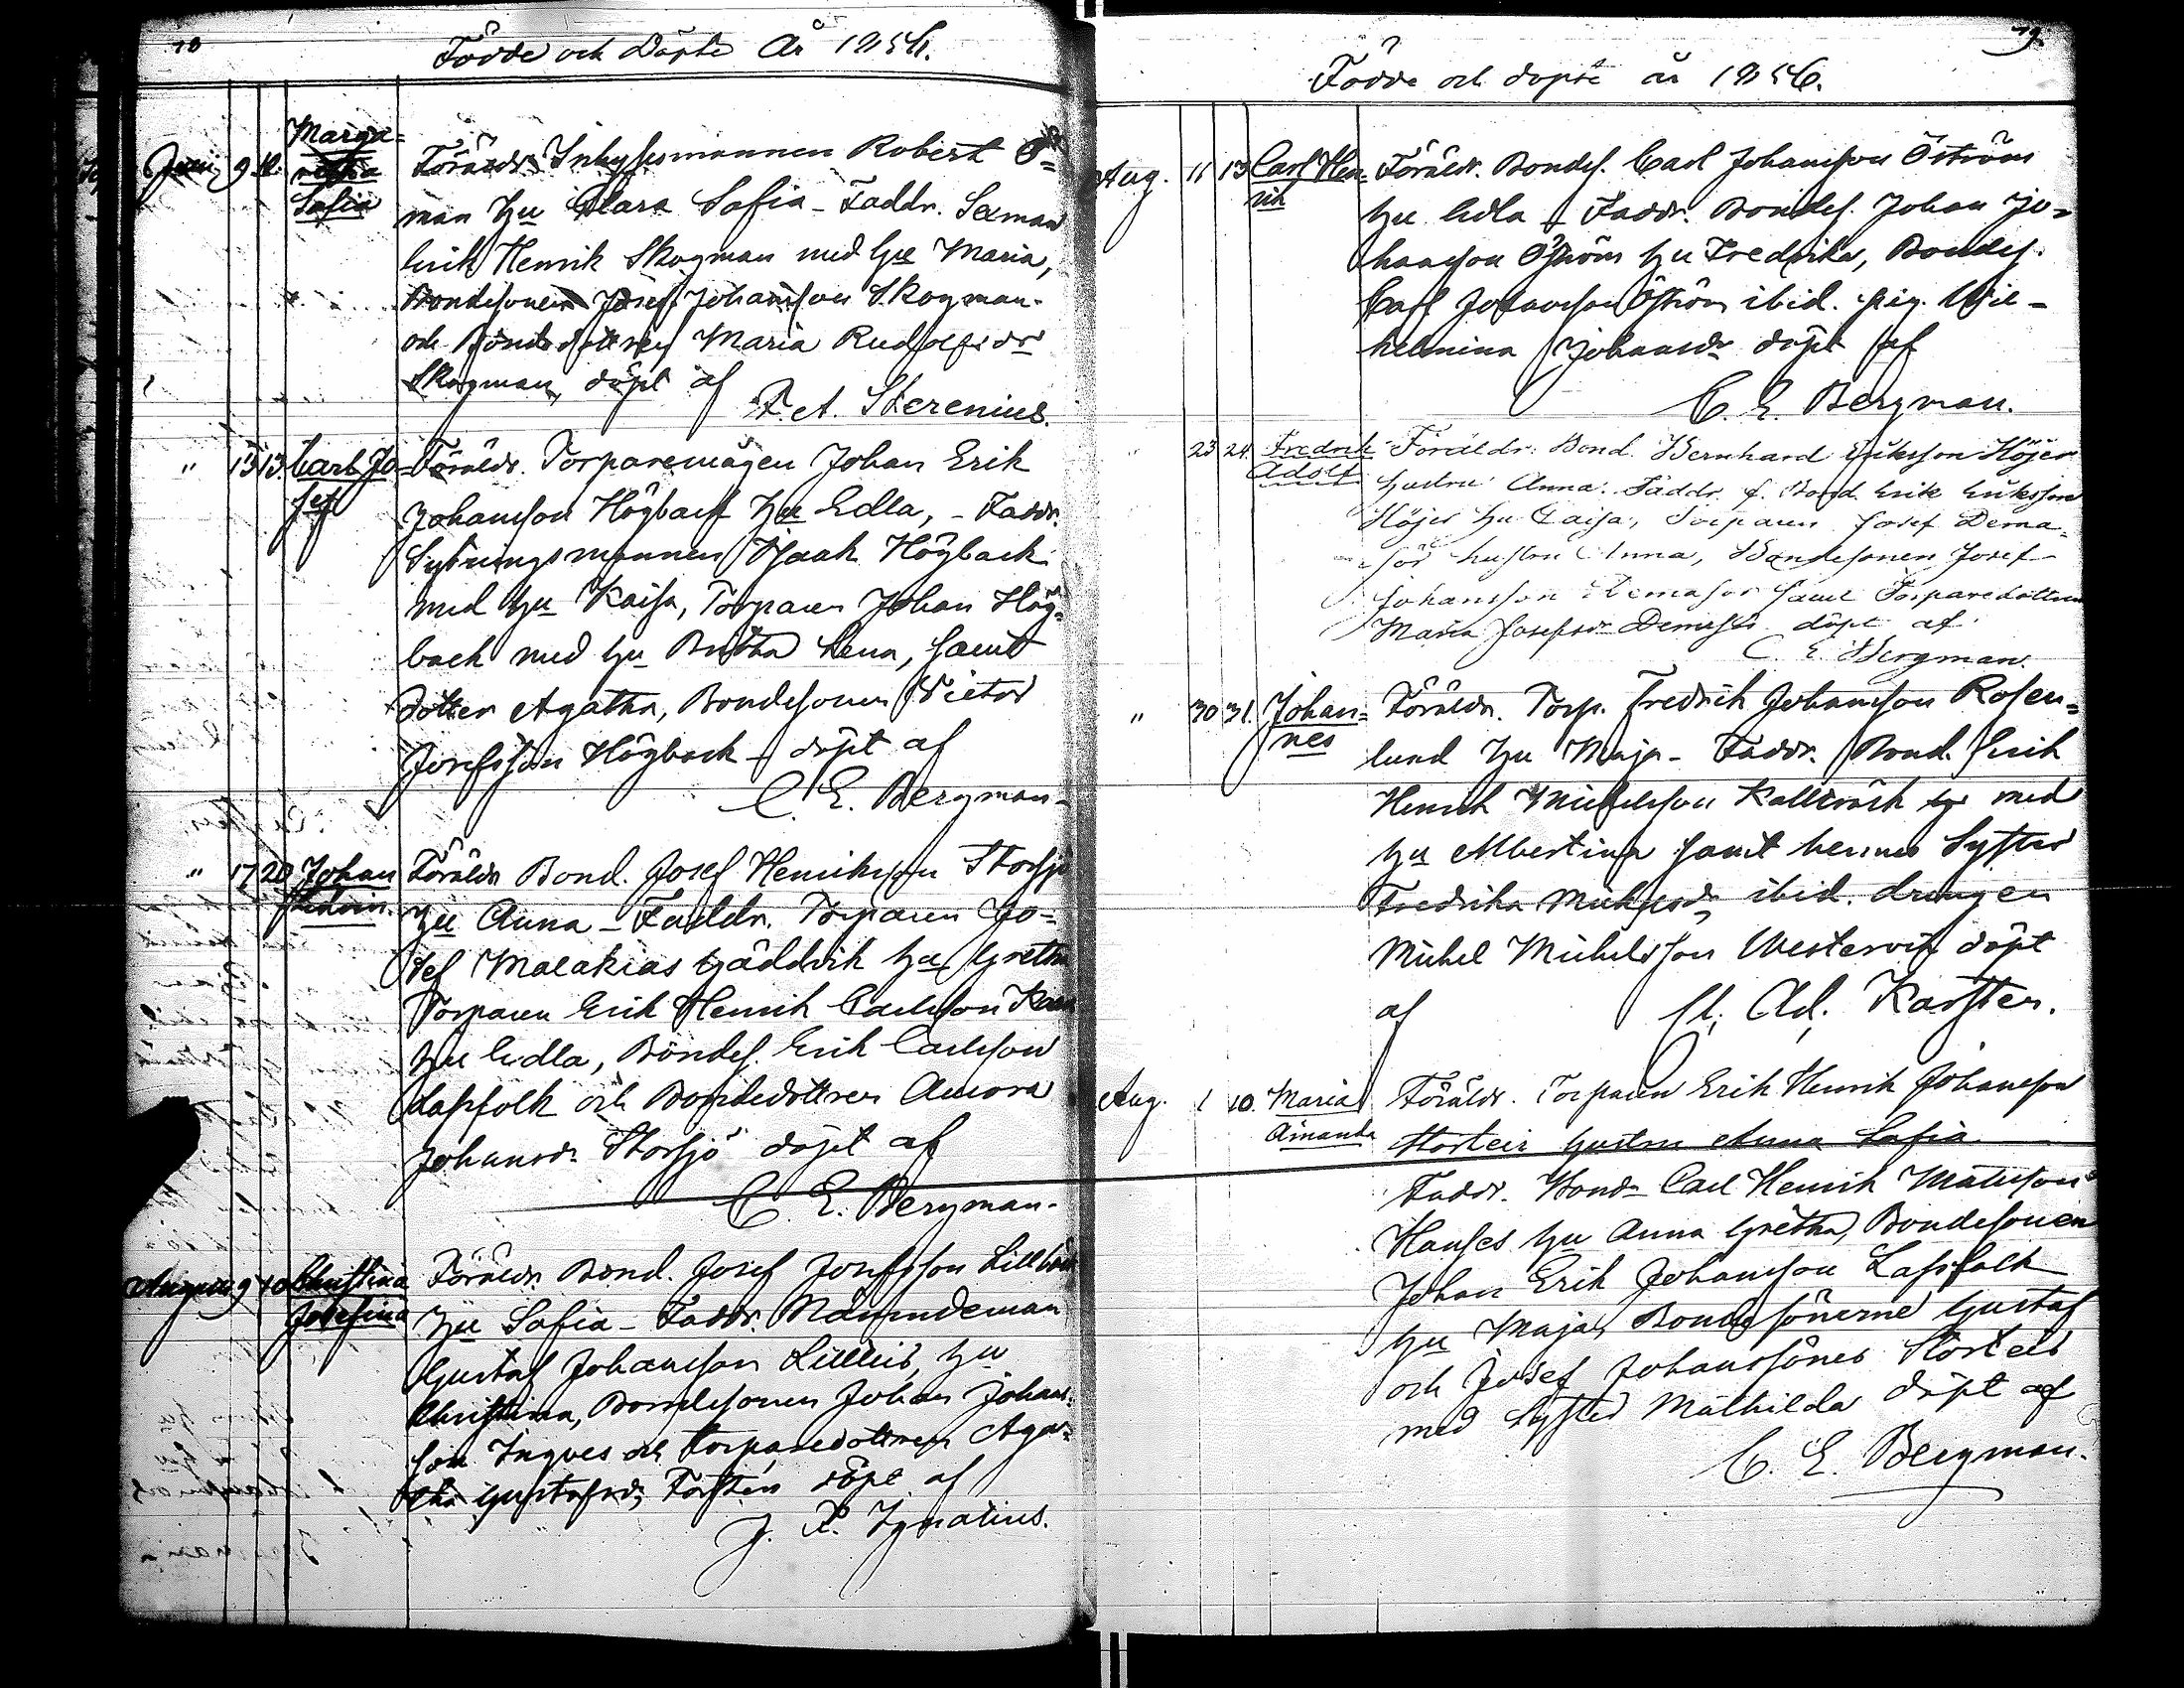 18
Födde och Döpte År 1856.
Juni 9 11. Marga=
retha
Sofia
Föräldr. Inhysesmannen Robert Ö=
man Hu Clara Sofia – Faddr. Sexman
Erik Henrik Skogman med Hu Maria,
Bondesonen Josef Johansson Skogman
och Bondedottren Maria Rudolfsdr
Skogman, döpt af
F. A. Sterenius.
" 13 13. Carl Jo=
sef
Föräldr. Torparemågen Johan Erik
Johansson Högback Hu Edla, – Faddr.
Sytningsmannen Isaak Högback
med Hu Kaisa, Torparen Johan Hög=
back med hu Britha Lena, samt
dotter Agatha, Bondesonen Victor
Josefsson Högback – döpt af
C. E. Bergman
" 17 20 Johan
Edvin.
Föräldr Bond. Josef Henriksson Storsjö
Hu Anna – Faddr. Torparen Jo=
sef Malakias Gäddvik hu Gretha
Torparen Erik Henrik Carlsson
Hu Edla, Bondes. Erik Carlsson
Lassfolk och Bondedottren Aurora
Johansdr Storsjö döpt af
C. E. Bergman.
Augusti 9 10 Christina
Josefina
Föräldr. Bond. Josef Josefsson
Hu Sofia – Faddr. Nämndeman
Gustaf Johansson hu
Christina, Bondesonen Johan Johans=
son Ingves och Torparedottren Aga=
tha Gustafsdr döpt af
J. F. Ignatius.
19.
Födde och döpte år 1856.
Aug. 11 13 Carl Hen=
rik
Föräldr. Bondes. Carl Johansson Öström
hu Edla – Faddr. Bondes. Johan Jo=
hansson Öström hu Fredrika, Bondes.
Carl Johansson Öström ibid. pig. Wil=
helmina Johansdr döpt af
C. E. Bergman.
" 23 24. Fredrik
Adolf
Föräldr. Bond. Bernhard Eriksson Höjer
hustru Anna. Faddr. f. Bond. Erik Eriksson
Höjer hu Caisa, Torparen Josef Dema=
sör hustru Anna, Bondesonen Josef
Johansson Demasör samt Torparedottren
Maria Josefsdr döpt af
C. E. Bergman.
" 30 31. Johan=
nes
Föräldr. Torp. Fredrik Johansson Rosen=
lund hu Maja – Faddr. Bond. Erik
Henrik Michelsson med
hu Albertina samt hennes Syster
Fredrika Michelsdr ibid. drängen
Michel Michelsson Westervik döpt
af Ad. Karsten.
Aug. 1 10. Maria
Amanda
Föräldr. Torparen Erik Henrik Johansson
Storteir hustru Anna Sofia
Faddr. Bond Carl Henrik Matsson
Hanses hu Anna Gretha, Bondesonen
Johan Erik Johansson Lassfolk
hu Maja, Bondesönerne Gustaf
och Josef Johanssöner Storteir
med Syster Mathilda döpt af
C. E. Bergman.